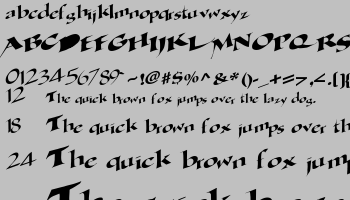 abcdefghijklmnopqrstuvwxyz
ABCDEFGHIJKLMNOPQRS
0123456789 ~!@#$%^&*()-_+=>,<.[]{
12 The quick brown fox jumps over the lazy dog.
18 The quick brown fox jumps over th
24 The quick brown fox jum
The quick b